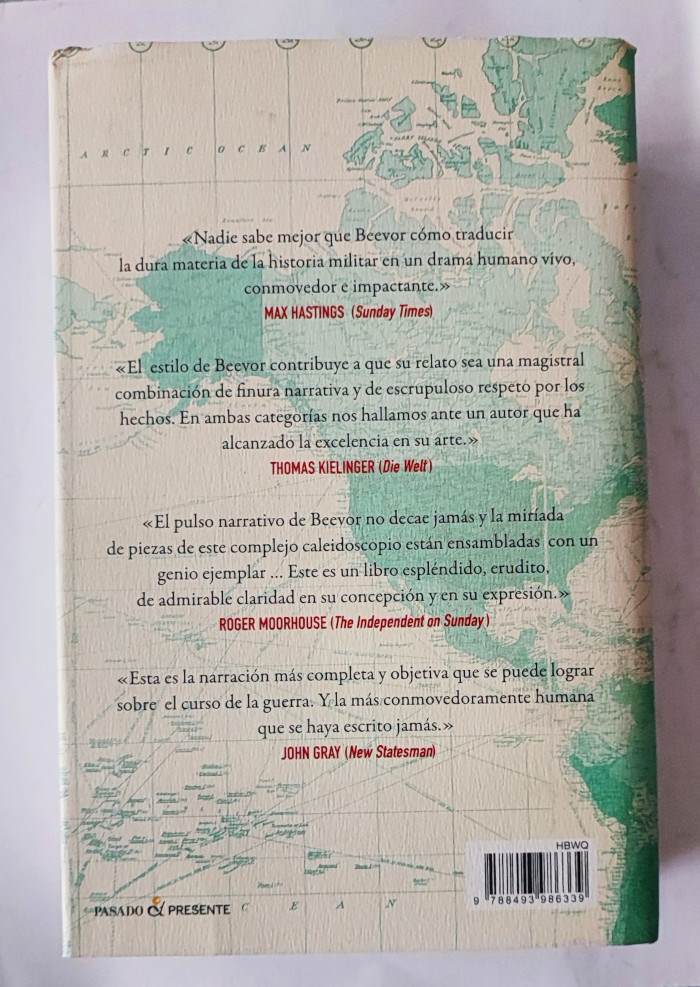 ARCTIC OCEAN
«Nadie sabe mejor que Beevor cómo traducir
la dura materia de la historia militar en un drama humano vivo,
conmovedor e impactante.»
MAX HASTINGS (Sunday Times)
«El estilo de Beevor contribuye a que su relato sea una magistral
combinación de finura narrativa y de escrupuloso respeto por los
hechos. En ambas categorías nos hallamos ante un autor que ha
alcanzado la excelencia en su arte.»
THOMAS KIELINGER (Die Welt)
«El pulso narrativo de Beevor no decae jamás y la miríada
de piezas de este complejo caleidoscopio están ensambladas con un
genio ejemplar ... Este es un libro espléndido, erudito,
de admirable claridad en su concepción y en su expresión.»
ROGER MOORHOUSE (The Independent on Sunday)
«Esta es la narración más completa y objetiva que se puede lograr
sobre el curso de la guerra. Y la más conmovedoramente humana
que se haya escrito jamás.»
JOHN GRAY (New Statesman)
HBWQ
9 788493 986339
PASADO & PRESENTE
C E A N